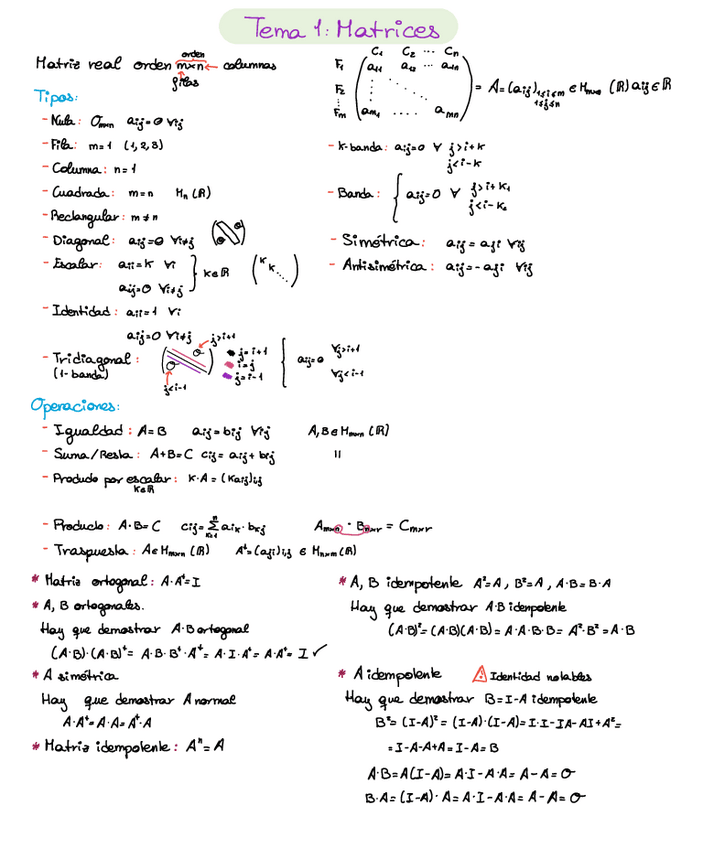 Tema 1: Matrices
orden
Matriz real orden m×n ← columnas
filas
C₁ C₂ ... Cₙ
F₁ a₁₁ a₁₂ ... a₁ₙ
F₂
Fₘ aₘ₁ .... aₘₙ
= A=(aij)1≤i≤m ∈ Mm×n (ℝ) aij∈ℝ
1≤j≤n
Tipos:
- Nula: Om×n aij=0 ∀ij
- Fila: m=1 (1,2,3)
- Columna: n=1
- Cuadrada: m=n Mn(ℝ)
- Rectangular: m≠n
- Diagonal: aij=0 ∀i≠j
- Escalar: aii=k ∀i
aij=0 ∀i≠j
} k∈ℝ (k k ...)
- Identidad: aii=1 ∀i
aij=0 ∀i≠j
- Tridiagonal:
(1-banda)
j>i+1
O
O
j<i-1
j=i+1
i=j
j=i-1
{ aij=0 ∀j>i+1
∀j<i-1
- k-banda: aij=0 ∀ j>i+k
j<i-k
- Banda: { aij=0 ∀ j>i+k₁
j<i-k₂
- Simétrica: aij=aji ∀ij
- Antisimétrica: aij=-aji ∀ij
Operaciones:
- Igualdad: A=B aij=bij ∀ij A,B∈Mm×n(ℝ)
- Suma/Resta: A+B=C cij=aij+bij "
- Producto por escalar: k·A=(kaij)ij
k∈ℝ
- Producto: A·B=C cij=∑ⁿₖ₌₁ aik·bkj Am×n · Bn×r = Cm×r
- Traspuesta: A∈Mm×n(ℝ) Aᵗ=(aji)i,j ∈ Mn×m(ℝ)
* Matriz ortogonal: A·Aᵗ=I
* A, B ortogonales.
Hay que demostrar A·B ortogonal
(A·B)·(A·B)ᵗ= A·B·Bᵗ·Aᵗ= A·I·Aᵗ= A·Aᵗ= I ✓
* A simétrica
Hay que demostrar A normal
A·Aᵗ=A·A=Aᵗ·A
* Matriz idempotente: Aⁿ=A
* A, B idempotente A²=A, B²=A, A·B=B·A
Hay que demostrar A·B idempotente
(A·B)²=(A·B)(A·B)=A·A·B·B=A²·B²=A·B
* A idempotente ⚠ Identidad notables
Hay que demostrar B=I-A idempotente
B²=(I-A)²=(I-A)·(I-A)=I·I-IA-AI+A²=
=I-A-A+A=I-A=B
A·B=A(I-A)=A·I-A·A=A-A=O
B·A=(I-A)·A=A·I-A·A=A-A=O